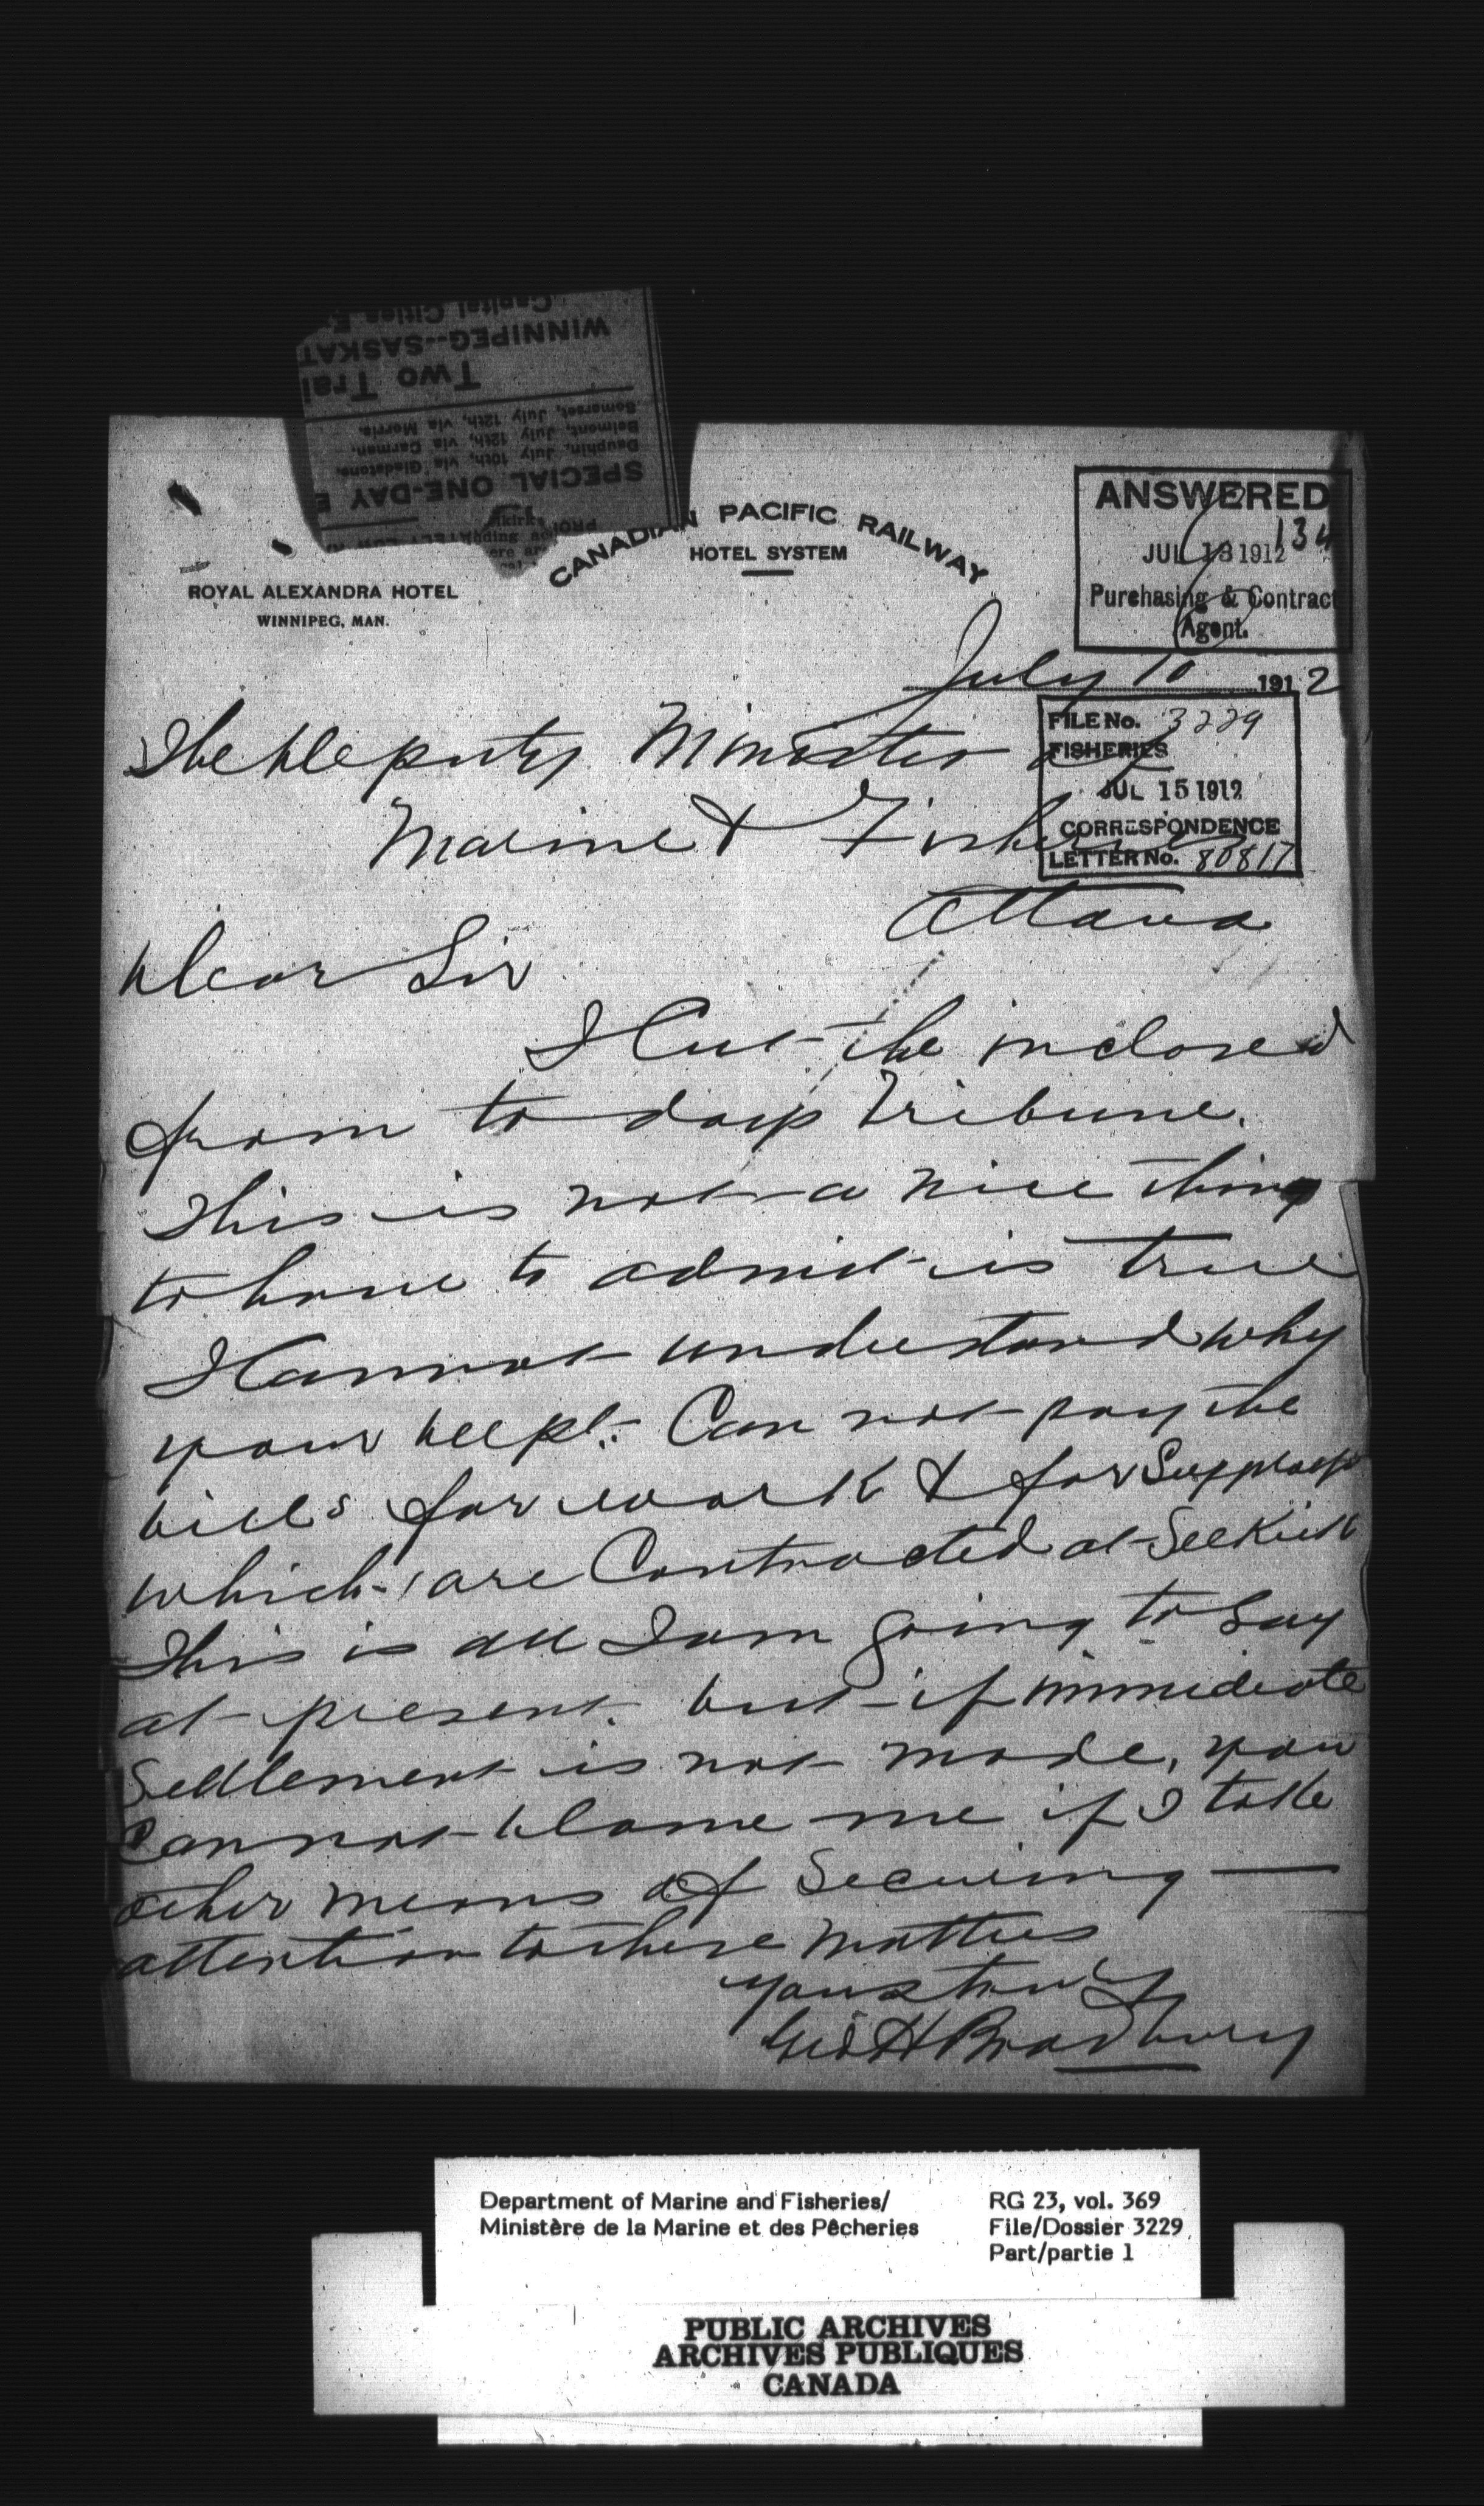 Capital Cities E
WINNIPEG--SASKAT
Two Trai
Somerset, July 12th, via Morris.
Belmont, July 12th, via Carman.
Dauphin, July 10th, via Gladstone.
SPECIAL ONE-DAY E
CANADIAN PACIFIC RAILWAY
HOTEL SYSTEM
ROYAL ALEXANDRA HOTEL
WINNIPEG, MAN.
ANSWERED
134
JUL 13 1912
Purchasing & Contract
Agent.
July 10 1912
FILE No. 3229
FISHERIES
JUL 15 1912
CORRESPONDENCE
LETTER No. 80817
The Deputy Minister of
Marine & Fisheries
Ottawa
Dear Sir
I Cut the inclosed
from to days Tribune.
This is not a nice thing
to have to admit is true
I Cannot understand why
your Dept. Can not pay the
bills for work & for Supplys
which are Contracted at Selkirk
This is all I am going to say
at present. but if immediate
Settlement is not made, you
Cannot blame me if I take
other means of Securing
attention to these matters
Yours truly
Geo H Bradbury
Department of Marine and Fisheries/
Ministère de la Marine et des Pêcheries
RG 23, vol. 369
File/Dossier 3229
Part/partie 1
PUBLIC ARCHIVES
ARCHIVES PUBLIQUES
CANADA